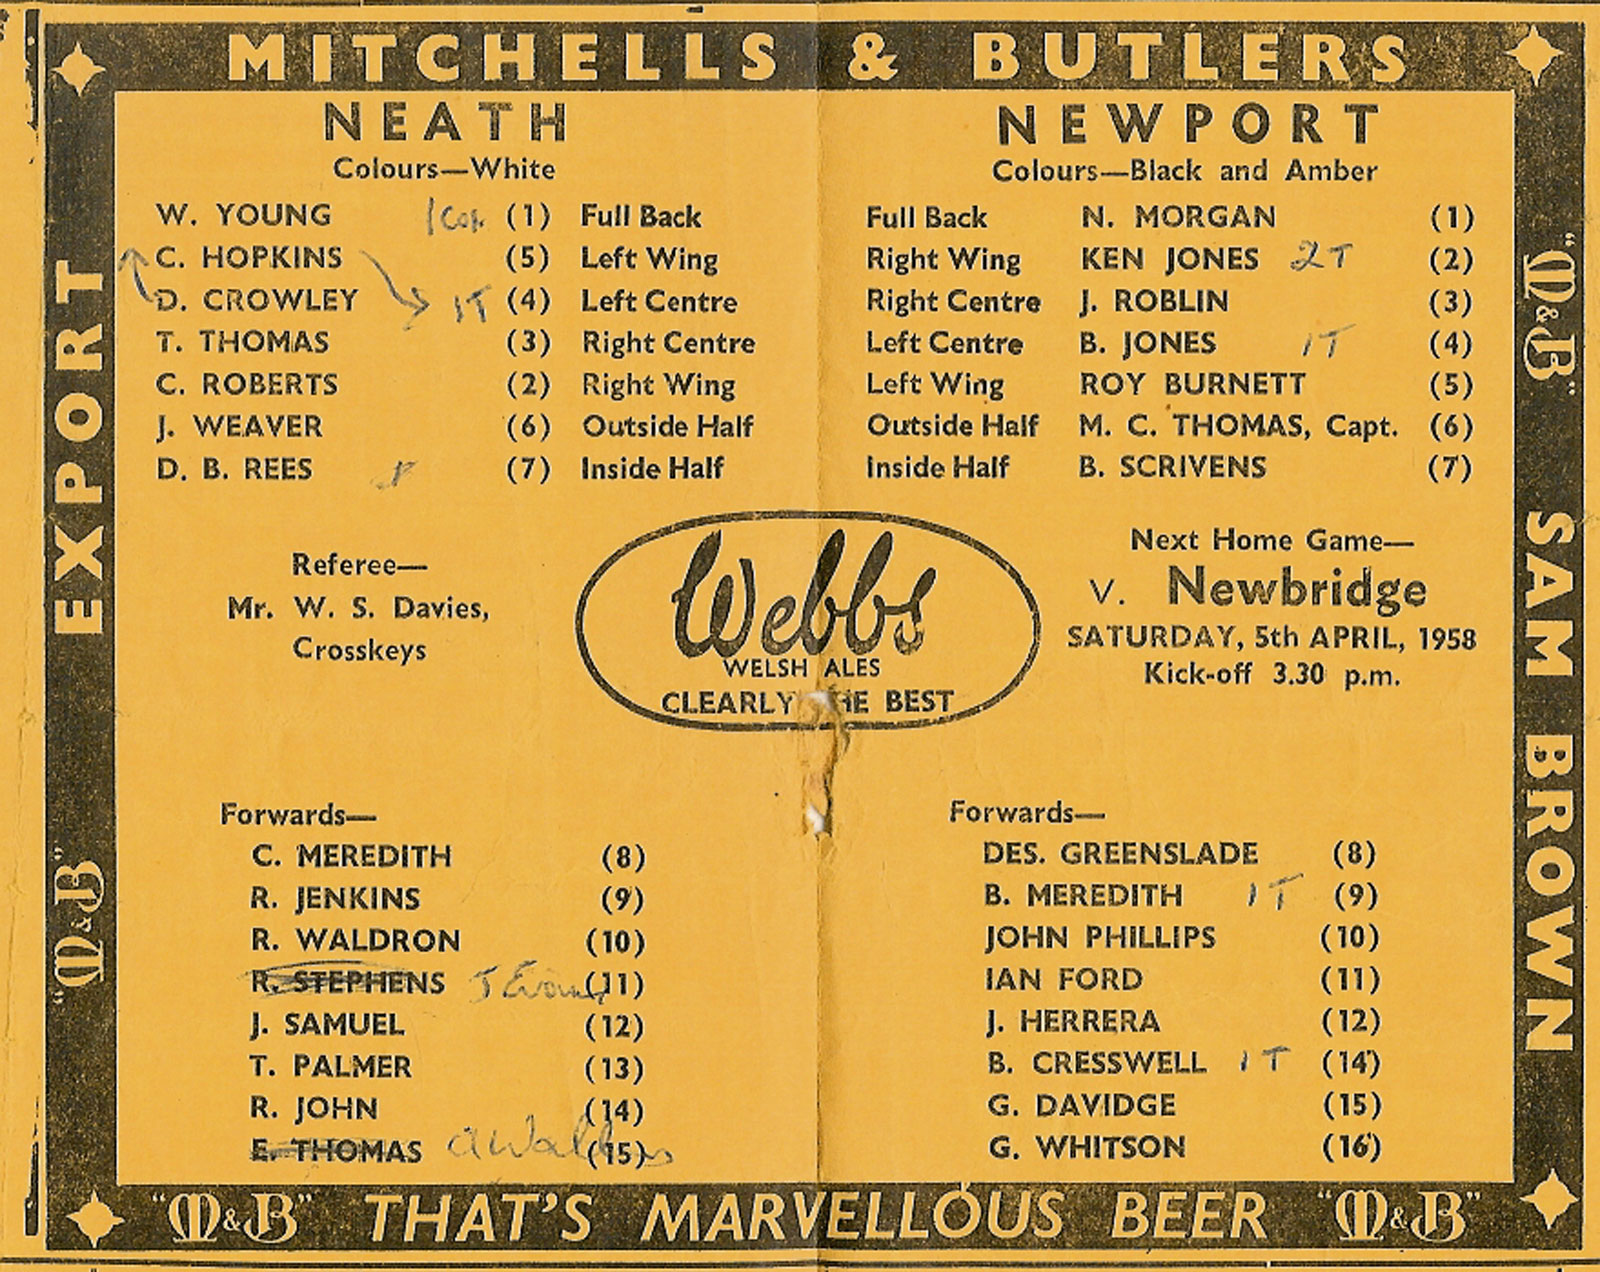 MITCHELLS & BUTLERS
EXPORT
"M&B"
NEATH
Colours—White
W. YOUNG 1 Con (1) Full Back
C. HOPKINS (5) Left Wing
D. CROWLEY 1T (4) Left Centre
T. THOMAS (3) Right Centre
C. ROBERTS (2) Right Wing
J. WEAVER (6) Outside Half
D. B. REES (7) Inside Half
Referee—
Mr. W. S. Davies,
Crosskeys
Forwards—
C. MEREDITH (8)
R. JENKINS (9)
R. WALDRON (10)
R. STEPHENS J Evans (11)
J. SAMUEL (12)
T. PALMER (13)
R. JOHN (14)
E. THOMAS (15)
Webbs
WELSH ALES
CLEARLY THE BEST
NEWPORT
Colours—Black and Amber
Full Back N. MORGAN (1)
Right Wing KEN JONES 2T (2)
Right Centre J. ROBLIN (3)
Left Centre B. JONES 1T (4)
Left Wing ROY BURNETT (5)
Outside Half M. C. THOMAS, Capt. (6)
Inside Half B. SCRIVENS (7)
Next Home Game—
v. Newbridge
SATURDAY, 5th APRIL, 1958
Kick-off 3.30 p.m.
Forwards—
DES. GREENSLADE (8)
B. MEREDITH 1T (9)
JOHN PHILLIPS (10)
IAN FORD (11)
J. HERRERA (12)
B. CRESSWELL 1T (14)
G. DAVIDGE (15)
G. WHITSON (16)
"M&B"
SAM BROWN
"M&B" THAT'S MARVELLOUS BEER "M&B"